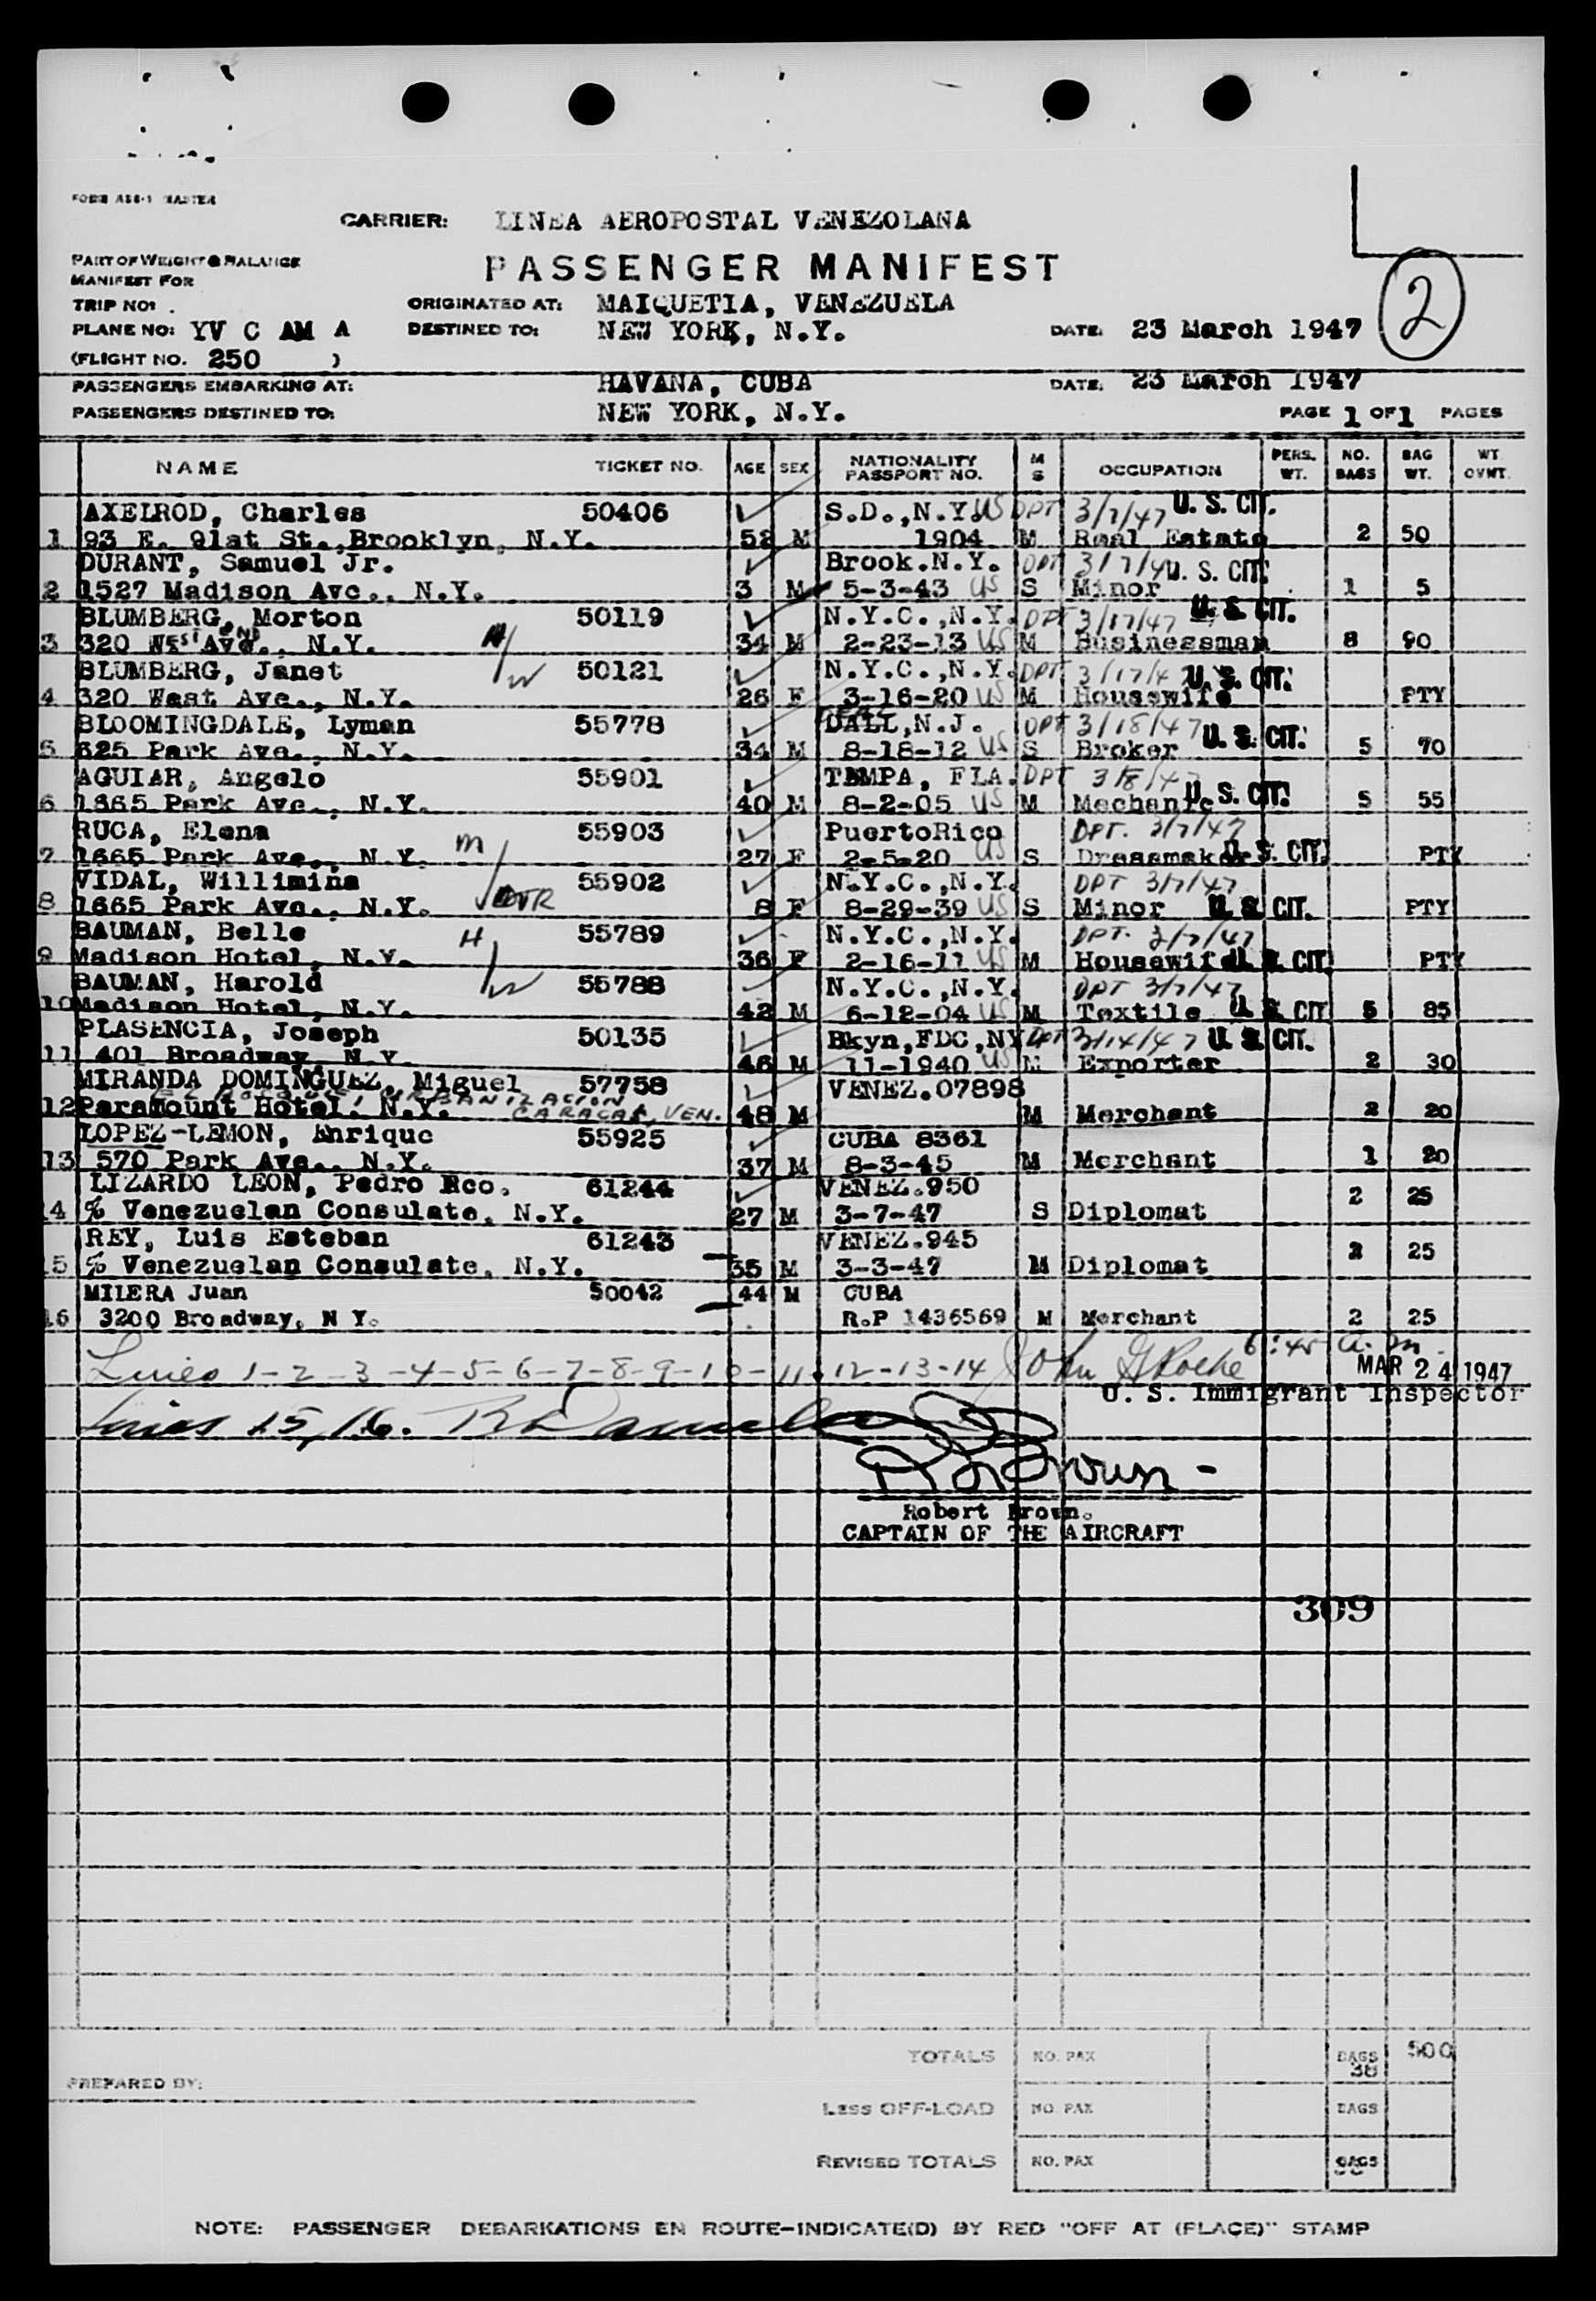 FORM ASS-1 MASTER
CARRIER: LINEA AEROPOSTAL VENEZOLANA
PART OF WEIGHT & BALANCE
MANIFEST FOR
PASSENGER MANIFEST
TRIP NO: .
ORIGINATED AT: MAIQUETIA, VENEZUELA
PLANE NO: YV C AM A DESTINED TO: NEW YORK, N.Y. DATE: 23 March 1947
2
(FLIGHT NO. 250 )
PASSENGERS EMBARKING AT: HAVANA, CUBA DATE: 23 March 1947
PASSENGERS DESTINED TO: NEW YORK, N.Y. PAGE 1 OF 1 PAGES
NAME TICKET NO. AGE SEX NATIONALITY PASSPORT NO. M S OCCUPATION PERS. WT. NO. BAGS BAG WT. WT. OVNT.
AXELROD, Charles 50406 S.D.,N.Y. US DPT 3/7/47 U. S. CIT.
1 93 E. 91st St.,Brooklyn, N.Y. 52 M 1904 M Real Estate 2 50
DURANT, Samuel Jr. Brook.N.Y. DPT 3/7/47 U. S. CIT.
2 1527 Madison Ave., N.Y. 3 M 5-3-43 US S Minor 1 5
BLUMBERG, Morton 50119 N.Y.C.,N.Y. DPT 3/17/47 U. S. CIT.
3 320 West END Ave., N.Y. H/ 34 M 2-23-13 US M Businessman 8 90
BLUMBERG, Janet /W 50121 N.Y.C.,N.Y. DPT 3/17/47 U. S. CIT.
4 320 West Ave., N.Y. 26 F 3-16-20 US M Housewife PTY
BLOOMINGDALE, Lyman 55778 DALL,N.J. DPT 3/18/47 U. S. CIT.
5 625 Park Ave., N.Y. 34 M 8-18-12 US S Broker 5 70
AGUIAR, Angelo 55901 TAMPA, FLA. DPT 3/8/47 U. S. CIT.
6 1665 Park Ave., N.Y. 40 M 8-2-05 US M Mechanic 5 55
RUCA, Elena 55903 PuertoRico DPT. 3/7/47
7 1665 Park Ave., N.Y. M/ 27 F 2-5-20 US S Dressmaker U. S. CIT. PTY
VIDAL, Willimina 55902 N.Y.C.,N.Y. DPT 3/7/47
8 1665 Park Ave., N.Y. /DTR 8 F 8-29-39 US S Minor U. S. CIT. PTY
BAUMAN, Belle H/ 55789 N.Y.C.,N.Y. DPT. 3/7/47
9 Madison Hotel, N.Y. 36 F 2-16-11 US M Housewife U. S. CIT. PTY
BAUMAN, Harold /W 55788 N.Y.C.,N.Y. DPT 3/7/47
10 Madison Hotel, N.Y. 42 M 6-12-04 US M Textile U. S. CIT 5 85
PLASENCIA, Joseph 50135 Bkyn,FDC,NY DPT 3/14/47 U. S. CIT.
11 401 Broadway, N.Y. 46 M 11-1940 US M Exporter 2 30
MIRANDA DOMINGUEZ, Miguel 57758 VENEZ.07898
URBANIZACION
12 Paramount Hotel. N.Y. CARACAS, VEN. 48 M M Merchant 2 20
LOPEZ-LEMON, Enrique 55925 CUBA 8361
13 570 Park Ave., N.Y. 37 M 8-3-45 M Merchant 1 20
LIZARDO LEON, Pedro Fco. 61244 VENEZ.950
14 % Venezuelan Consulate, N.Y. 27 M 3-7-47 S Diplomat 2 25
REY, Luis Esteban 61243 VENEZ.945
15 % Venezuelan Consulate, N.Y. 35 M 3-3-47 M Diplomat 2 25
MILERA Juan 50042 44 M CUBA
16 3200 Broadway, N Y. R.P 1436569 M Merchant 2 25
Lines 1-2-3-4-5-6-7-8-9-10-11-12-13-14 John G Roche 6:45 a.m.
MAR 24 1947
U. S. Immigrant Inspector
Lines 15,16.
R Brown
Robert Brown.
CAPTAIN OF THE AIRCRAFT
309
TOTALS NO. PAX BAGS 38 500
PREPARED BY:
Less OFF-LOAD NO. PAX BAGS
REVISED TOTALS NO. PAX BAGS
NOTE: PASSENGER DEBARKATIONS EN ROUTE-INDICATE(D) BY RED "OFF AT (PLACE)" STAMP